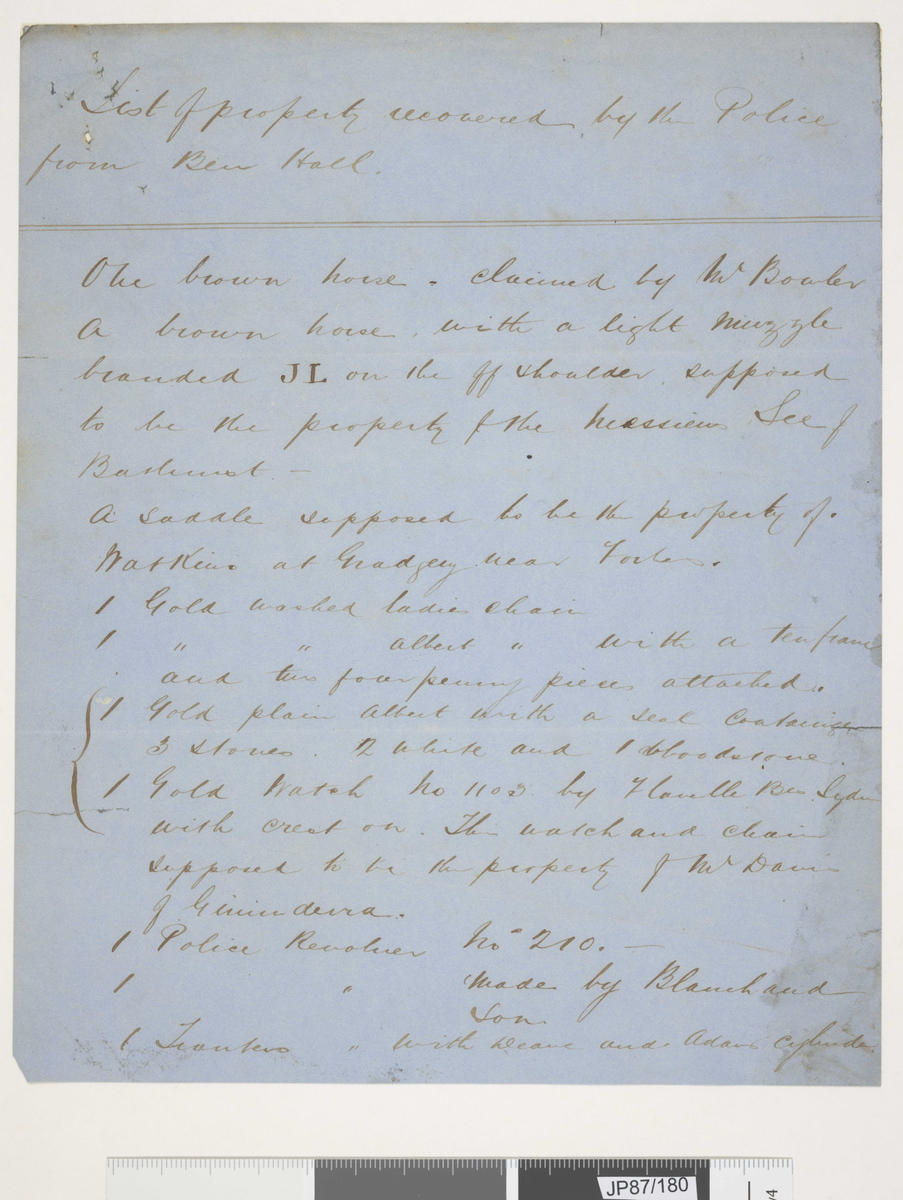 List of property recovered by the Police
from Ben Hall.
One brown horse - claimed by Mr Bowler
A brown horse, with a light muzzle
branded JL on the off shoulder, supposed
to be the property of the Messieurs Lee of
Bathurst -
A saddle supposed to be the property of.
Watkins at Gradgery near Forbes.
1 Gold washed ladies chain
1 " " albert " with a ten franc
and two fourpenny pieces attached.
1 Gold plain albert with a seal containing
3 stones. 2 white and 1 bloodstone.
1 Gold Watch No 1103 by Flavelle Bros Sydn
with crest on. The watch and chain
supposed to be the property of Mr Davis
of Ginindera.
1 Police Revolver No 210. -
1 " made by Blanch and
Son
1 Tranters " with Deane and Adams Cylinder
JP87/180